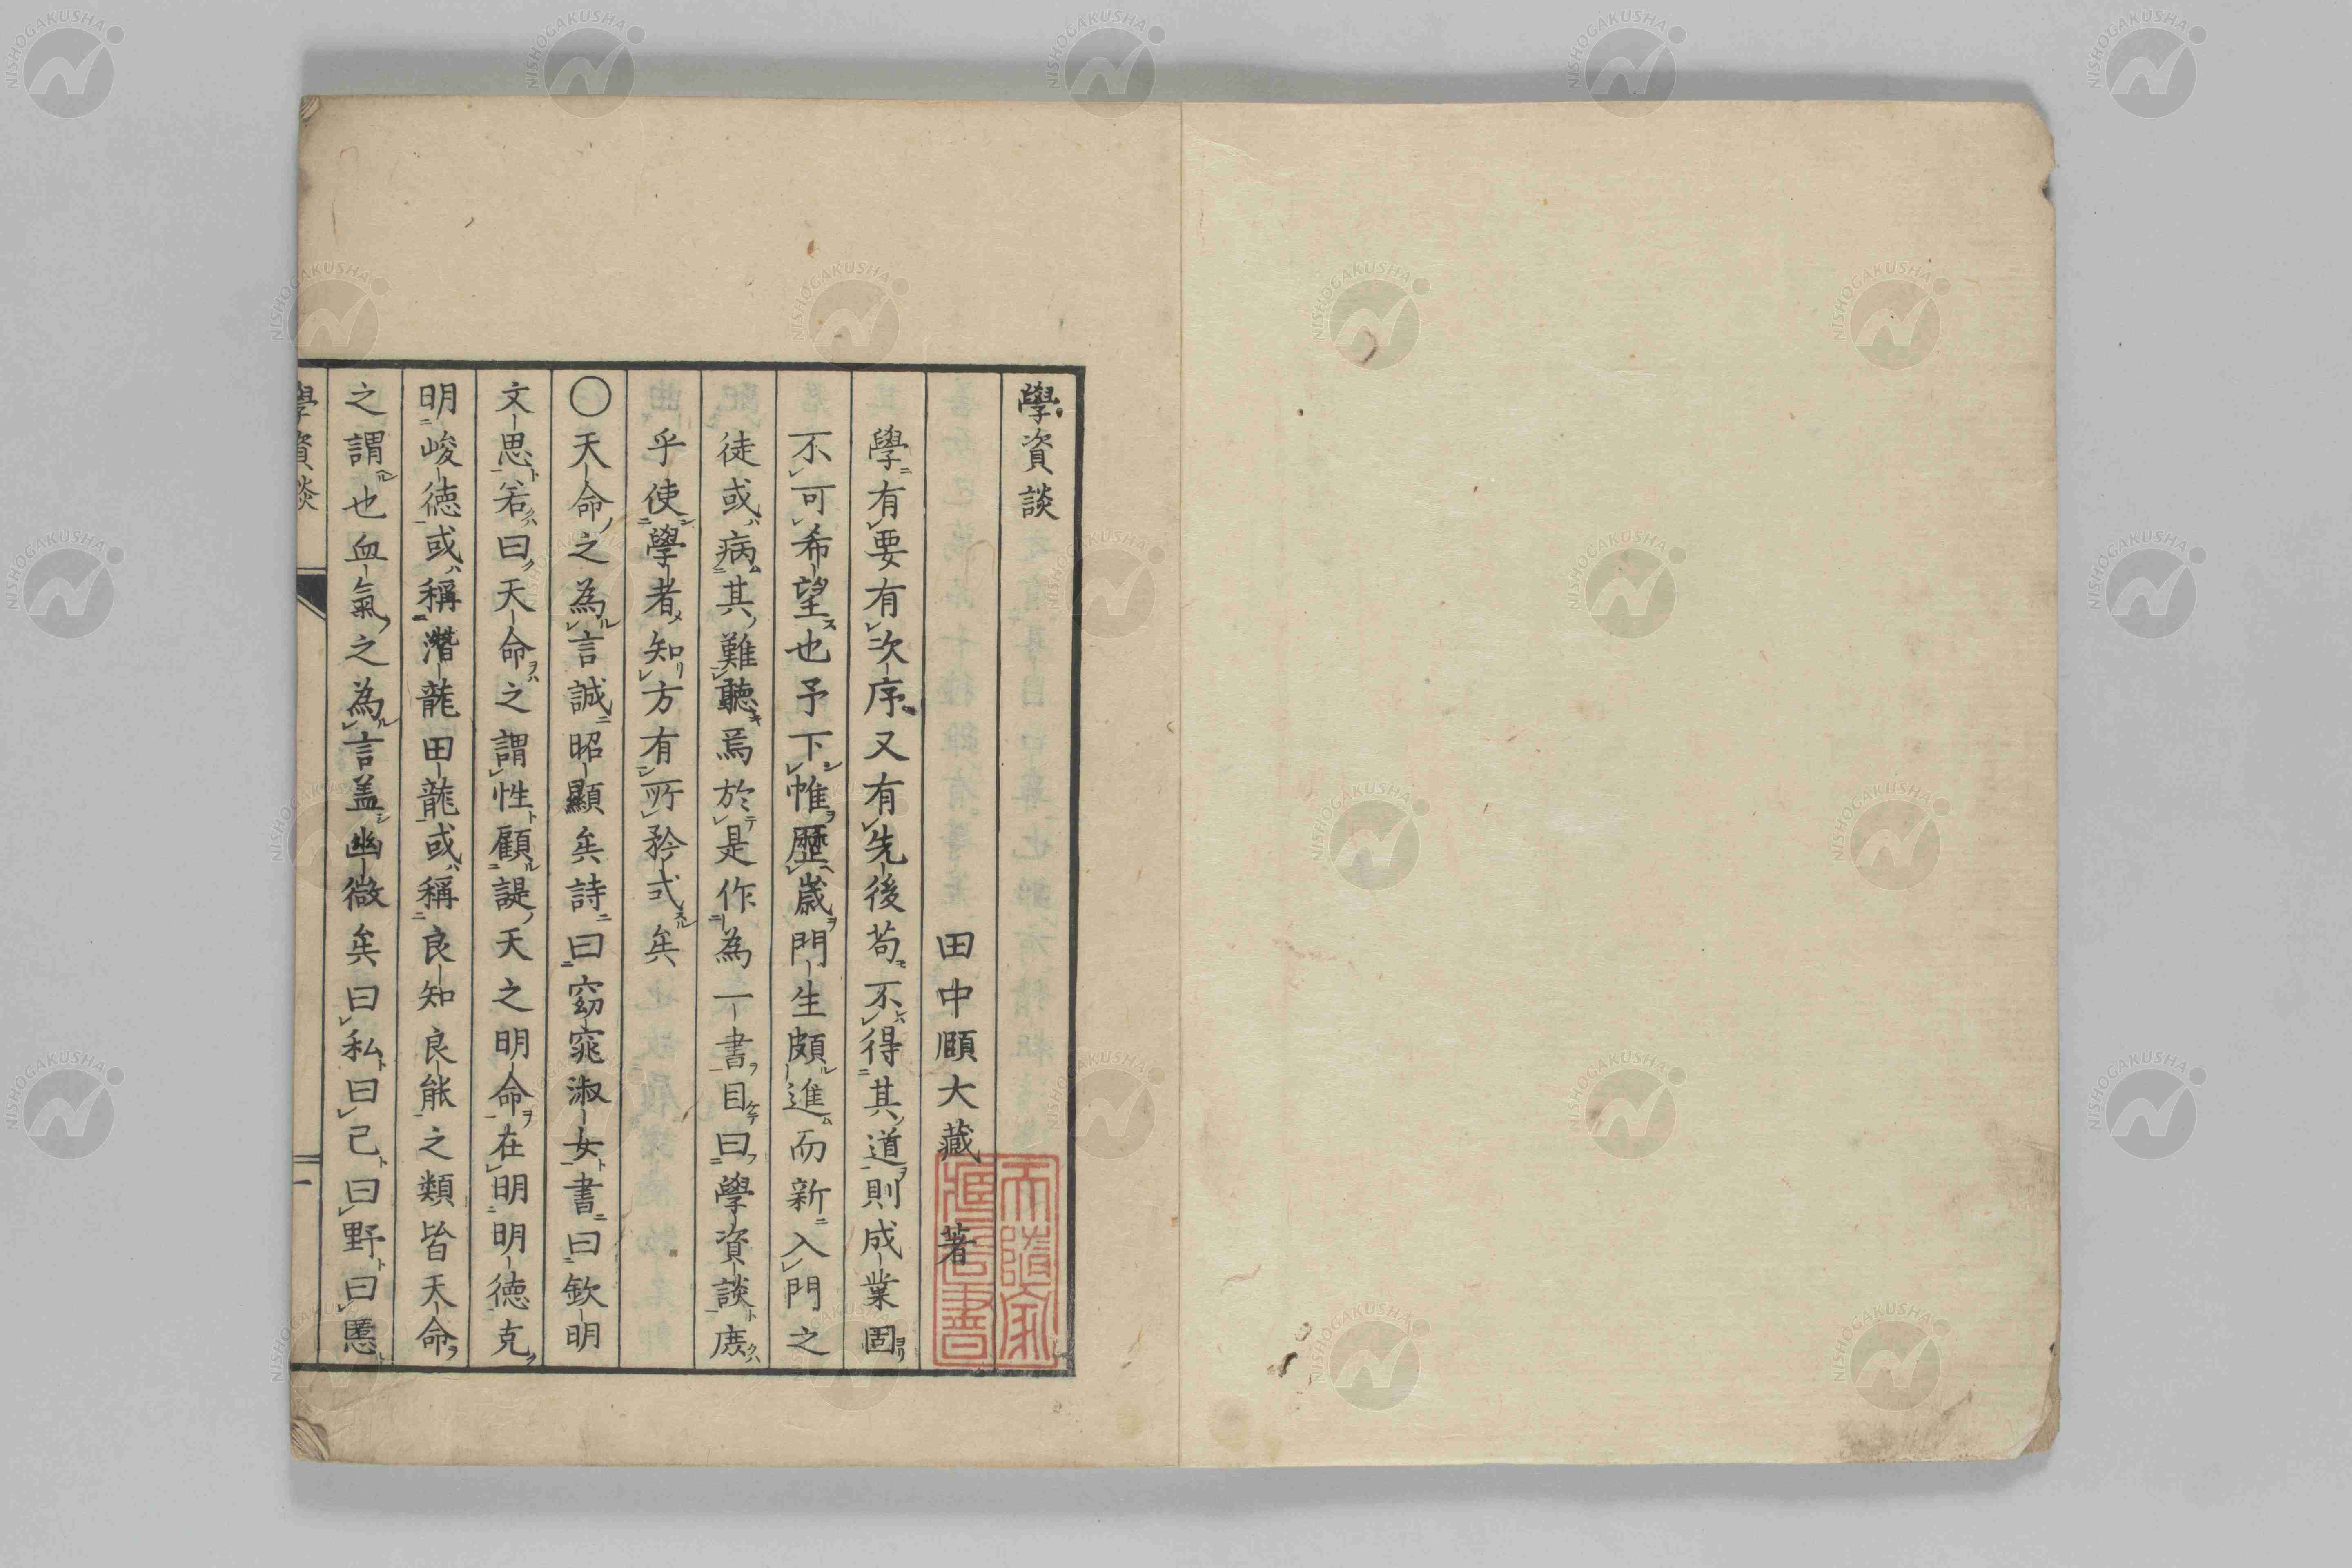 學資談
田中頤大藏 著
學有要有次序又有先後苟不得其道則成業固
不可希望也予下帷歷歳門生頗進而新入門之
徒或病其難聽焉於是作為一書目曰學資談庶
乎使學者知方有所矜式矣
〇天命之為言誠昭顯矣詩曰窈窕淑女書曰欽明
文思若曰天命之謂性顧諟天之明命在明明徳克
明峻徳或稱潛龍田龍或稱良知良能之類皆天命
之謂也血氣之為言盖幽微矣曰私曰己曰野曰慝
學資談
一
NISHOGAKUSHA